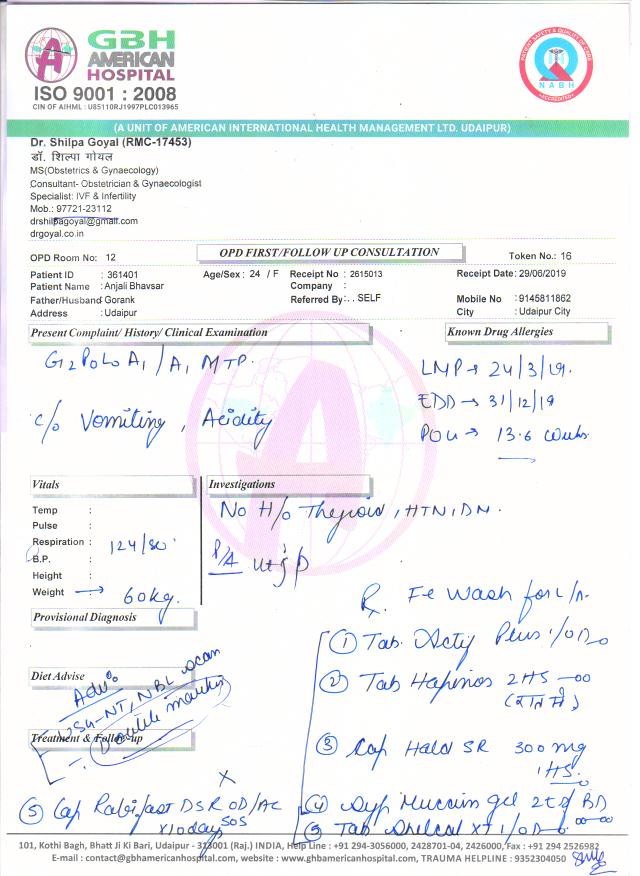 GBH
AMERICAN
HOSPITAL
ISO 9001 : 2008
CIN OF AIHML : U85110RJ1997PLC013965
PATIENT SAFETY & QUALITY OF CARE
NABH
ACCREDITED
(A UNIT OF AMERICAN INTERNATIONAL HEALTH MANAGEMENT LTD. UDAIPUR)
Dr. Shilpa Goyal (RMC-17453)
डॉ. शिल्पा गोयल
MS(Obstetrics & Gynaecology)
Consultant- Obstetrician & Gynaecologist
Specialist: IVF & Infertility
Mob.: 97721-23112
drshilpagoyal@gmail.com
drgoyal.co.in
OPD Room No: 12
OPD FIRST/FOLLOW UP CONSULTATION
Token No.: 16
Patient ID : 361401 Age/Sex : 24 / F Receipt No : 2615013 Receipt Date: 29/06/2019
Patient Name : Anjali Bhavsar Company :
Father/Husband Gorank Referred By: . . SELF Mobile No : 9145811862
Address : Udaipur City : Udaipur City
Present Complaint/ History/ Clinical Examination
Known Drug Allergies
G2P0L0A1 / A1 MTP.
LMP → 24/3/19.
EDD → 31/12/19
c/o Vomiting, Acidity
POG → 13.6 weeks.
Vitals
Investigations
Temp :
Pulse :
Respiration :
B.P. : 124/80
Height :
Weight → 60kg.
No H/o Thyroid, HTN, DM.
P/A
Rx. Wash for
Provisional Diagnosis
① Tab. Plus 1/OD
Diet Advise
Adv:
NT, NBL scan
Double marker
② Tab 2HS
Treatment & Follow-up
③ Cap SR 300 mg
1HS
④ Syp Mucain gel 2tsf BD
⑤ Cap Rabifast DSR OD/AC
x10days SOS
⑤ Tab Shelcal XT 1/OD
101, Kothi Bagh, Bhatt Ji Ki Bari, Udaipur - 313001 (Raj.) INDIA, Help Line : +91 294-3056000, 2428701-04, 2426000, Fax : +91 294 2526982
E-mail : contact@gbhamericanhospital.com, website : www.gbhamericanhospital.com, TRAUMA HELPLINE : 9352304050